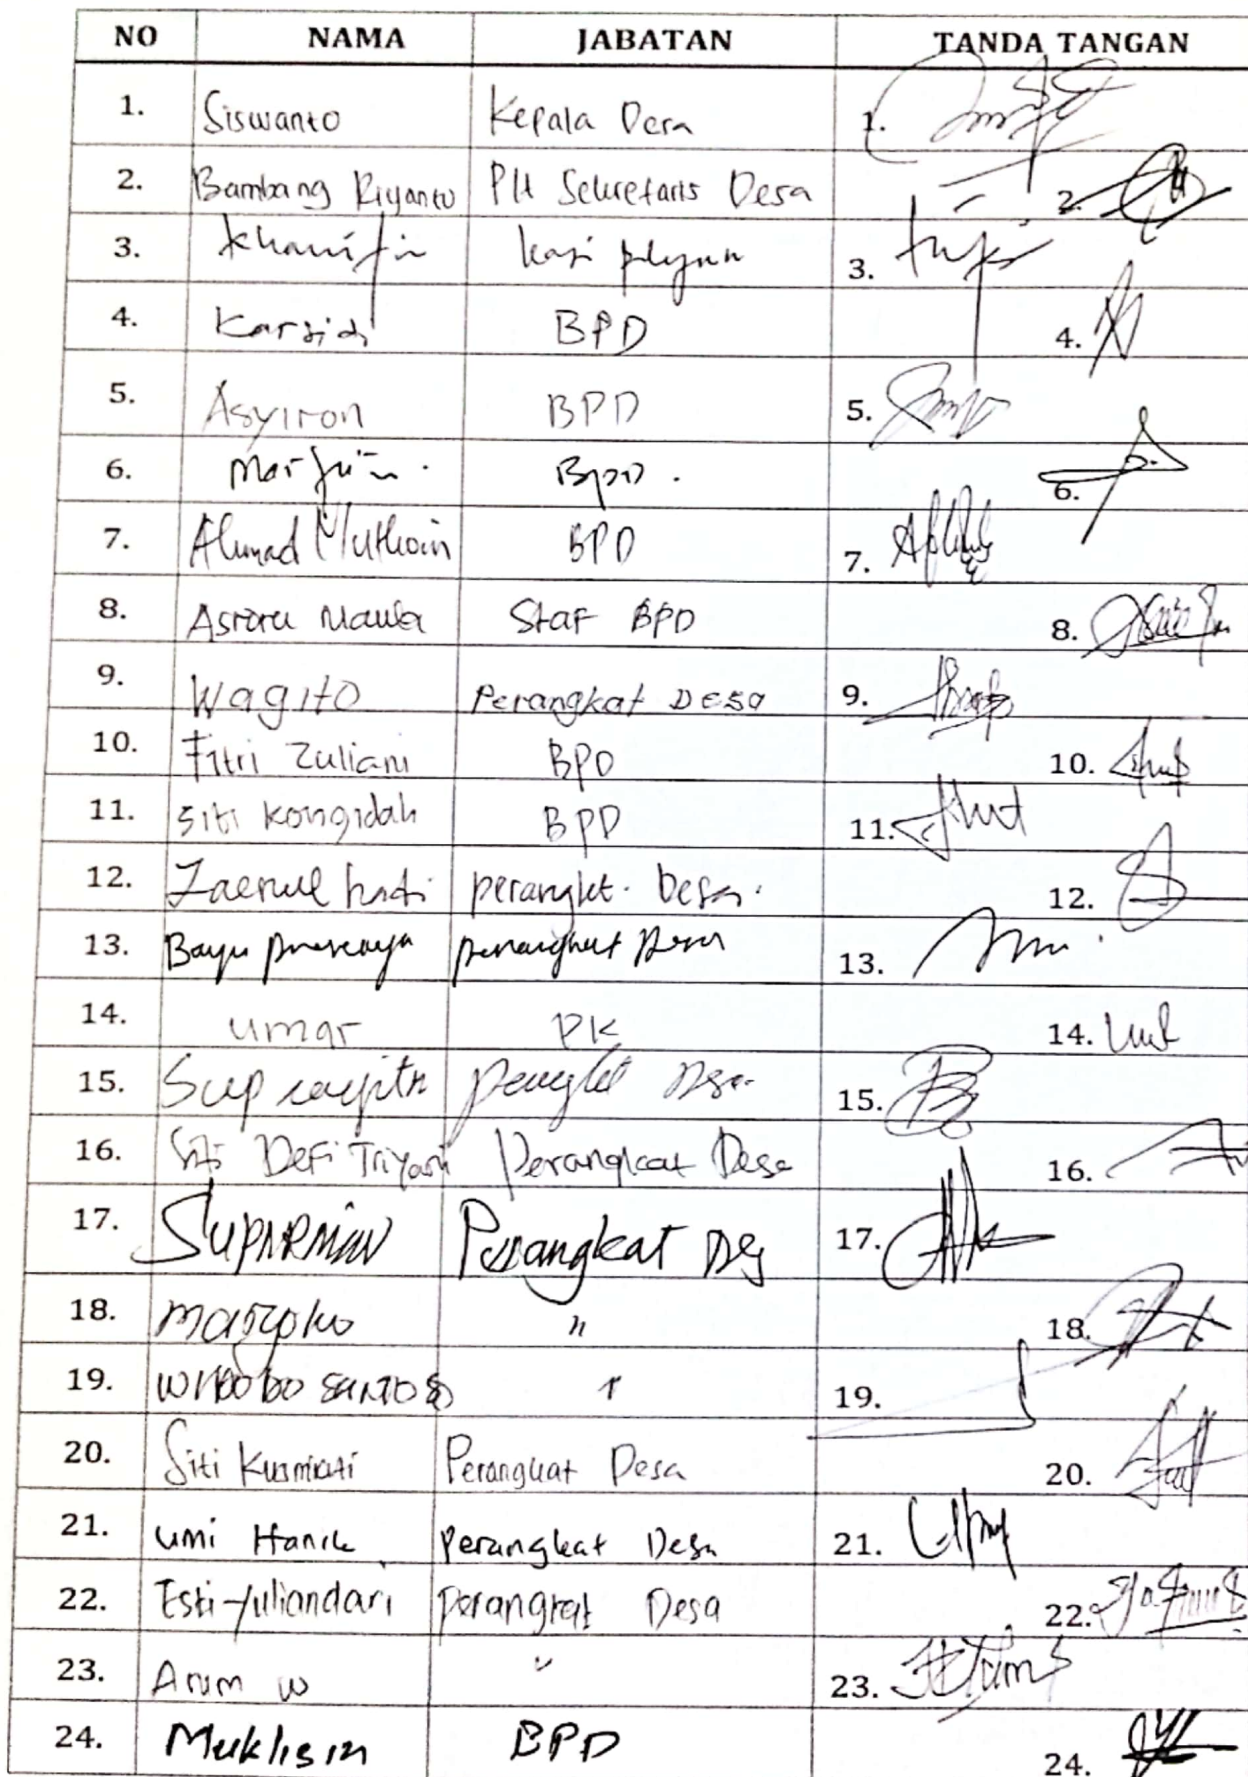 NO NAMA JABATAN TANDA TANGAN
1. Siswanto Kepala Desa 1.
2. Bambang Riyanto Plt Sekretaris Desa 2.
3. Khanifin Kasi 3.
4. Karsidi BPD 4.
5. Asyiron BPD 5.
6. BPD. 6.
7. Ahmad Muthoin BPD 7.
8. Asroru Maula Staf BPD 8.
9. Wagito Perangkat Desa 9.
10. Fitri Zuliani BPD 10.
11. Siti Kongidah BPD 11.
12. Zaenul hadi perangkt. Desa. 12.
13. Bayu perangkat Desa 13.
14. umar PK 14.
15. Desa 15.
16. Siti Defi Triyani Perangkat Desa 16.
17. SUPARMAN Perangkat 17.
18. Maryoko " 18.
19. WIBOBO SANTOSO 19.
20. Siti Kusmiati Perangkat Desa 20.
21. Umi Hanik Perangkat Desa 21.
22. Esti Yuliandari Perangkat Desa 22.
23. Arum W " 23.
24. Muklisin BPD 24.